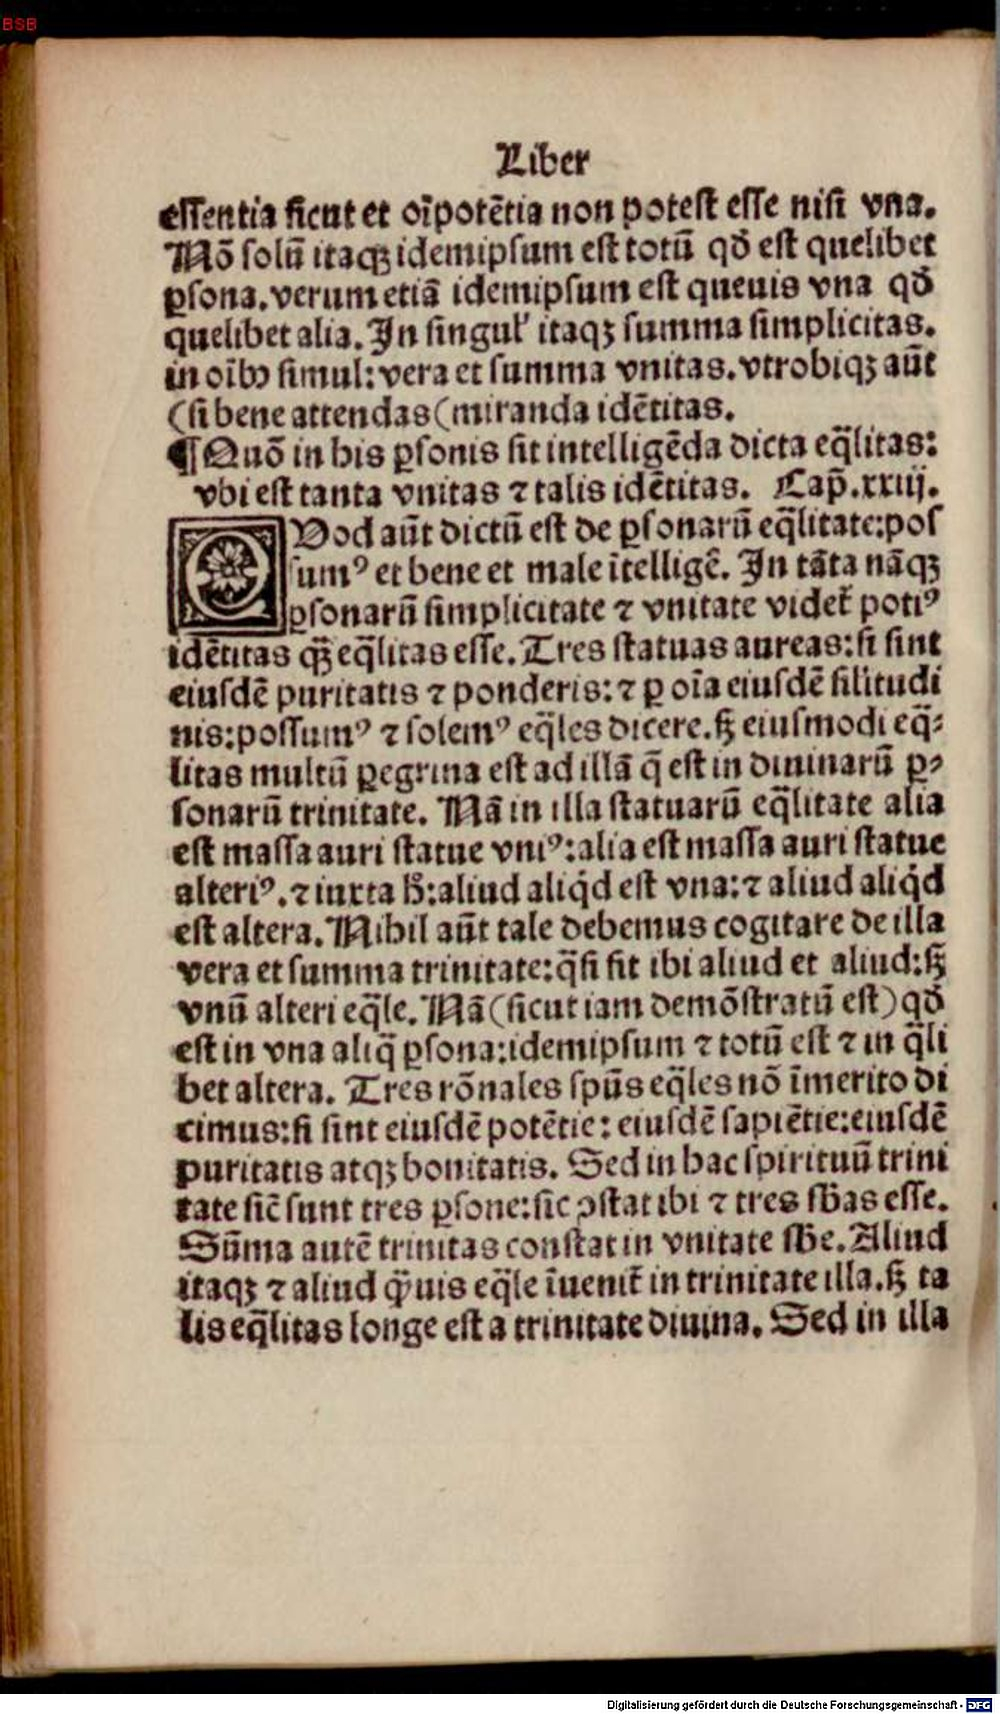 BSB
Liber
essentia sicut et oīpotētia non potest esse nisi vna.
Nō solū itaqꝫ idemipsum est totū qđ est quelibet
ꝑsona.verum etiā idemipsum est queuis vna qđ
quelibet alia. In singul' itaqꝫ summa simplicitas.
in oībꝰ simul: vera et summa vnitas. vtrobiqꝫ aūt
(si bene attendas(miranda idētitas.
¶ Quō in his ꝑsonis sit intelligēda dicta eq̄litas:
vbi est tanta vnitas ⁊ talis idētitas. Cap̄.xxiij.
QVod aūt dictū est de ꝑsonarū eq̄litate:pos
sumꝰ et bene et male ītelligē. In tāta nāqꝫ
ꝑsonarū simplicitate ⁊ vnitate videt̄ potiꝰ
idētitas qꝫ̄ eq̄litas esse. Tres statuas aureas: si sint
eiusdē puritatis ⁊ ponderis: ⁊ ꝑ oīa eiusdē silitudi
nis:possumꝰ ⁊ solemꝰ eq̄les dicere.sꝫ eiusmodi eq̄⸗
litas multū ꝑegrina est ad illā q̄ est in diuinarū ꝑ⸗
sonarū trinitate. Nā in illa statuarū eq̄litate alia
est massa auri statue vniꝰ:alia est massa auri statue
alteriꝰ.⁊ iuxta h̄:aliud aliq̇d est vna:⁊ aliud aliq̇d
est altera. Nihil aūt tale debemus cogitare de illa
vera et summa trinitate:q̄si sit ibi aliud et aliud:sꝫ
vnū alteri eq̄le. Nā (sicut iam demōstratū est) qđ
est in vna aliq̄ ꝑsona:idemipsum ⁊ totū est ⁊ in q̄li
bet altera. Tres rōnales spūs eq̄les nō īmerito di
cimus:si sint eiusdē potētie: eiusdē sapiētie:eiusdē
puritatis atqꝫ bonitatis. Sed in hac spirituū trini
tate sic̄ sunt tres ꝑsone:sic ꝯstat ibi ⁊ tres sb̄as esse.
Sūma autē trinitas constat in vnitate sb̄e. Aliud
itaqꝫ ⁊ aliud q̄uis eq̄le īuenit̄ in trinitate illa.sꝫ ta
lis eq̄litas longe est a trinitate diuina. Sed in illa
Digitalisierung gefördert durch die Deutsche Forschungsgemeinschaft - DFG